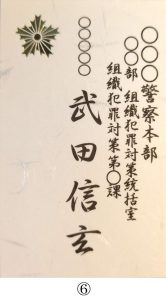 〇〇〇警察本部
〇〇部 組織犯罪対策統括室
組織犯罪対策第〇課
〇〇〇〇〇
武田信玄
⑥